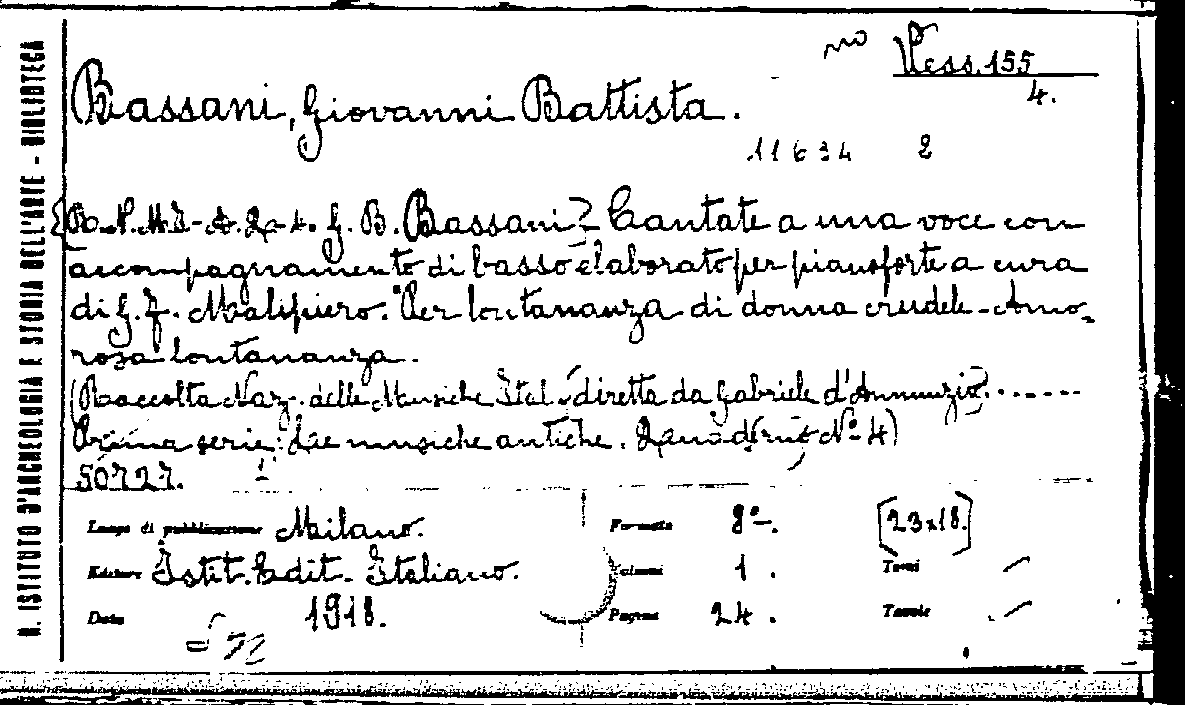 R. ISTITUTO D'ARCHEOLOGIA E STORIA DELL'ARTE - BIBLIOTECA
no Vess. 155
4.
Bassani, Giovanni Battista.
11634 2
[R.N.M.I-A.Q-4. G. B. Bassani] Cantate a una voce con
accompagnamento di basso elaborato per pianoforte a cura
di G. F. Malipiero. Per lontananza di donna crudele - Amo-
rosa lontananza.
(Raccolta Naz. delle Musiche Ital. diretta da Gabriele d'Annunzio.......
Prima serie: Le musiche antiche. Quaderno No 4)
50727.
Luogo di pubblicazione Milano. Formato 8o-. [23x18.]
Editore Istit. Edit. Italiano. Volumi 1. Tomi /
Data 1918. Pagine 24. Tavole /